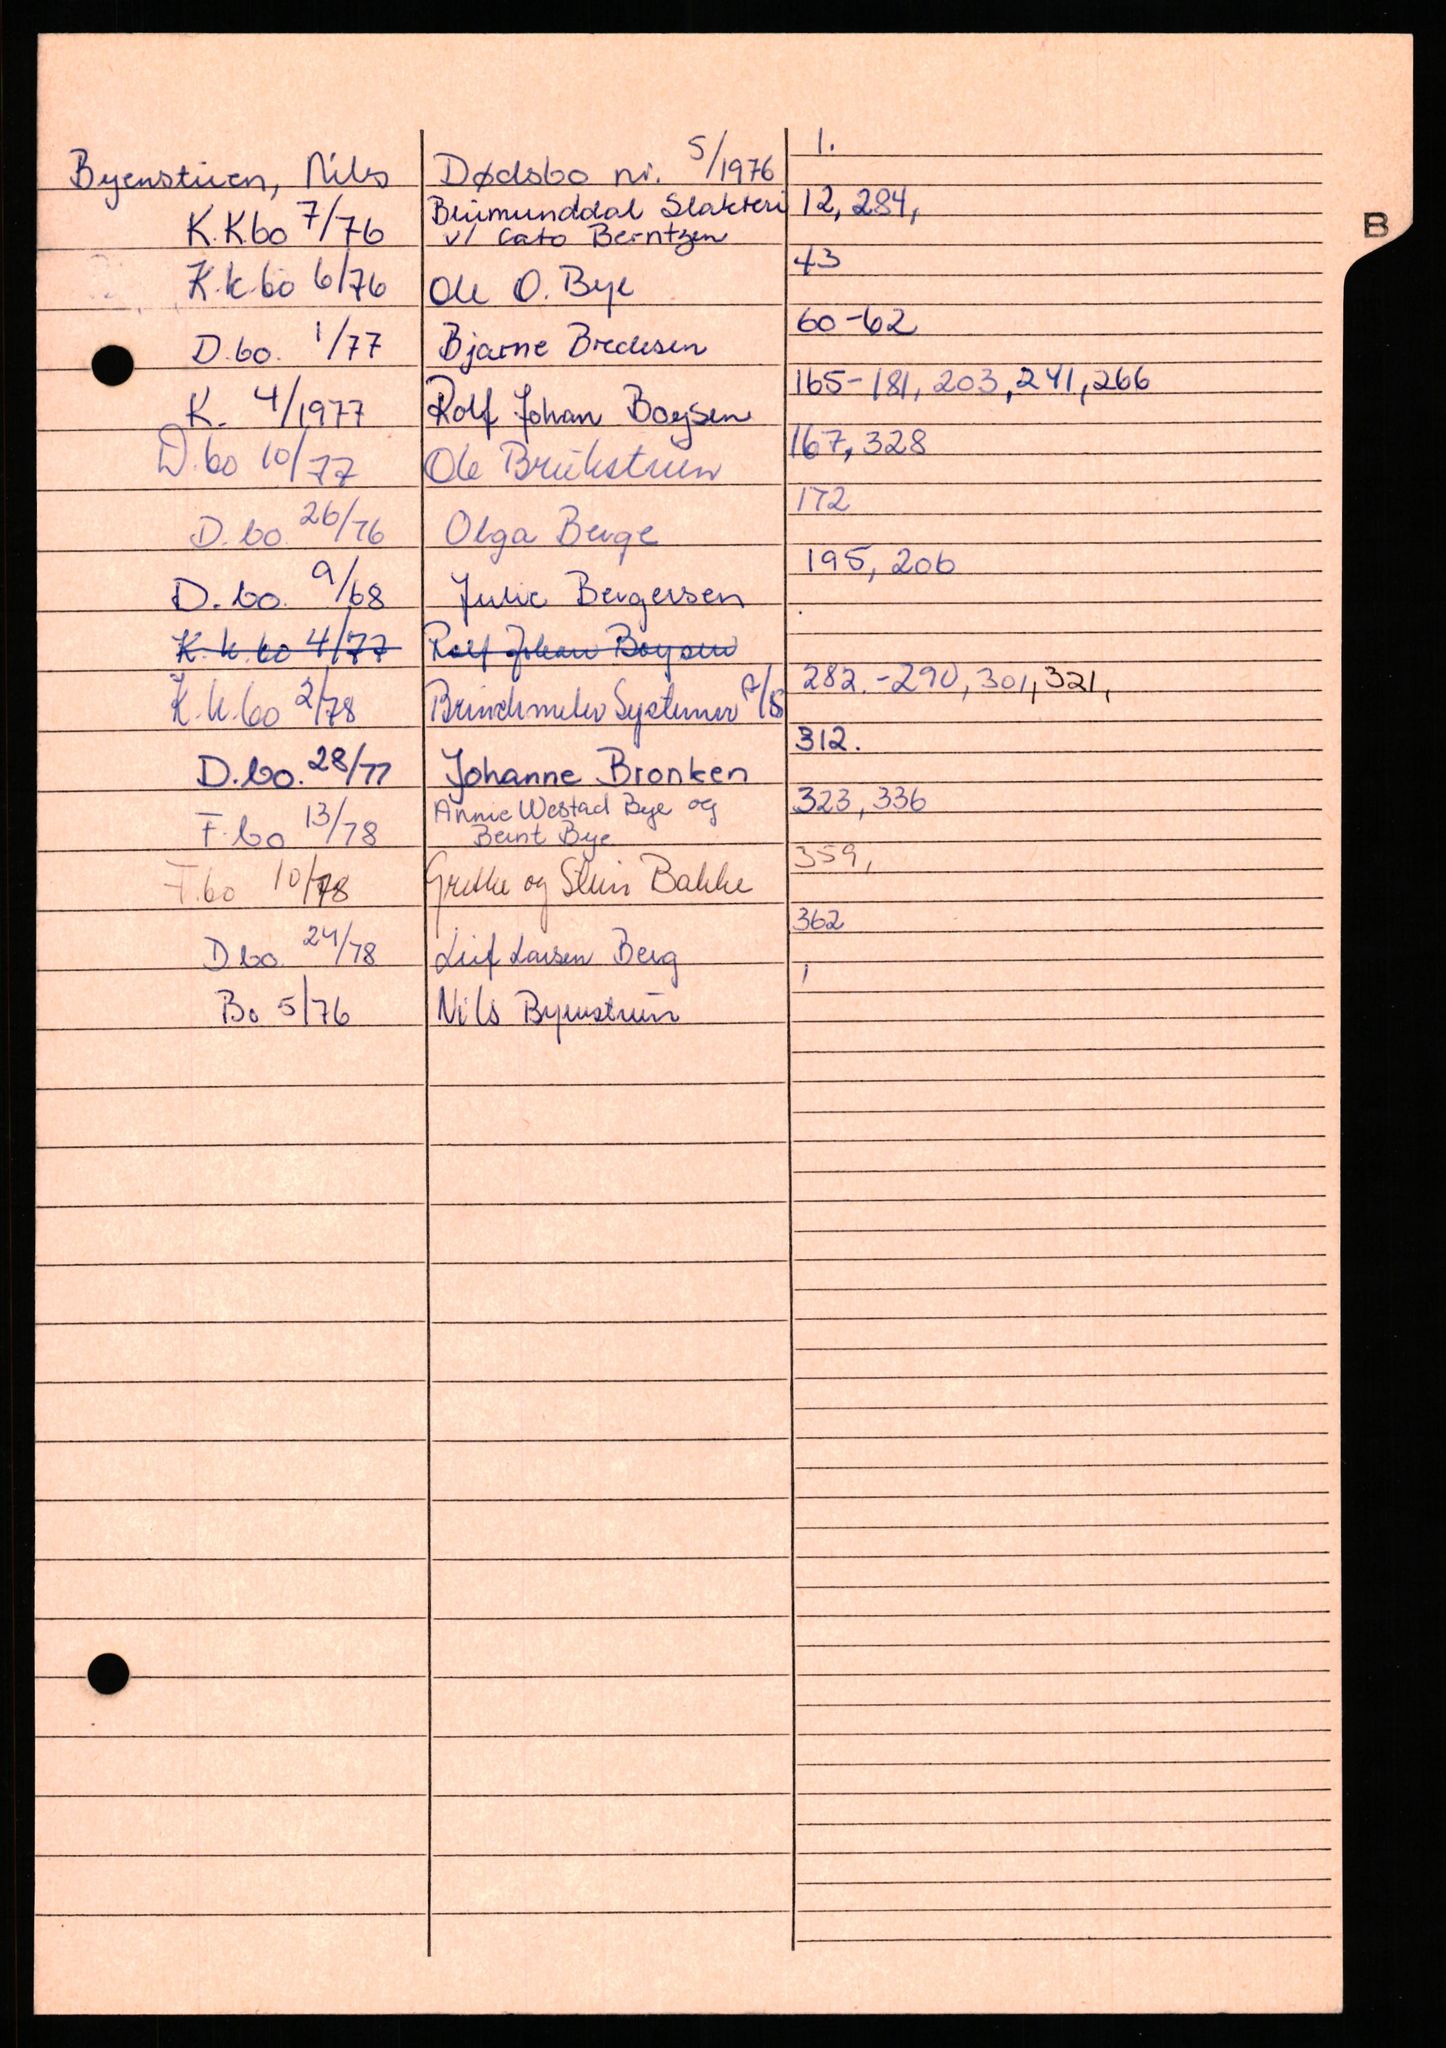 B
Byenstuen, Nils Dødsbo nr. 5/1976 1.
K.Kbo 7/76 Brumunddal Slakteri 12, 284,
v/ Cato Berntzen
K.k.bo 6/76 Ole O. Bye 43
D.bo. 1/77 Bjarne Bredesen 60-62
K. 4/1977 Rolf Johan Boysen 165-181, 203, 241, 266
D.bo 10/77 Ole 167, 328
D.bo. 26/76 Olga Berge 172
D.bo. 9/68 Julie Bergersen 195, 206
K.k.bo 4/77 Rolf Johan Boysen
K.k.bo 2/78 Systemer A/S 282.-290, 301, 321,
D.bo. 28/77 Johanne Bronken 312.
F.bo 13/78 Annie Westad Bye og 323, 336
Bernt Bye
F.bo 10/78 Grethe og Stein Bakke 359,
D.bo. 24/78 Leif Larsen Berg 362
Bo 5/76 Nils Byenstuen